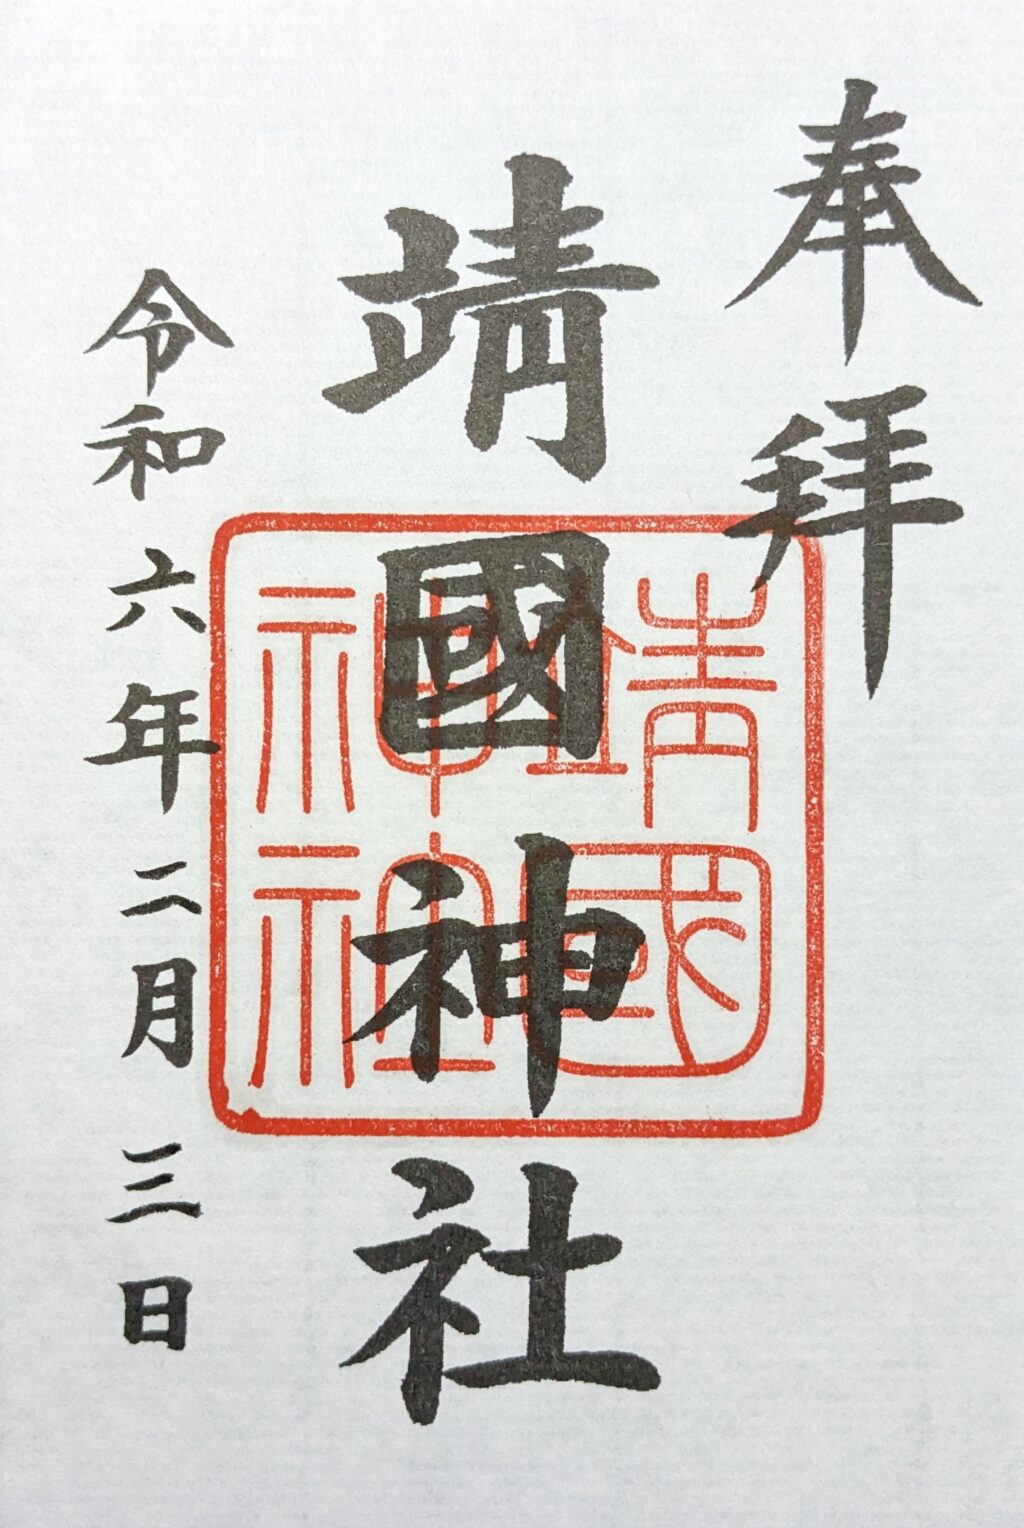 奉拝
靖國神社
靖國
神社
令和六年二月三日